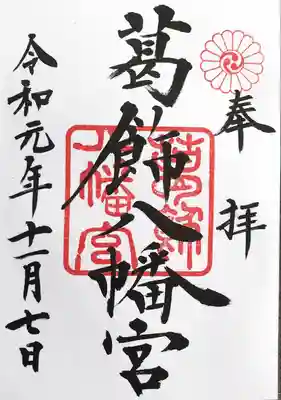 奉拝
葛飾八幡宮
葛飾
八幡宮
令和元年十一月七日